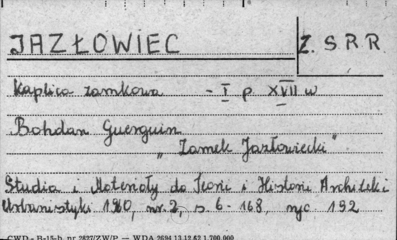 JAZŁOWIEC
Z. S. R R.
Kaplica zamkowa - I p. XVII w
Bohdan Guerquin
„Zamek Jazłowiecki”
Studia i Materiały do Teorii i Historii Architekt.
Urbanistyki 1960, nr. 2, s. 6-168, ryc 192
CWD - B-15-b nr 2827/ZW/P — WDA 2694 13.12.62 1.700.000